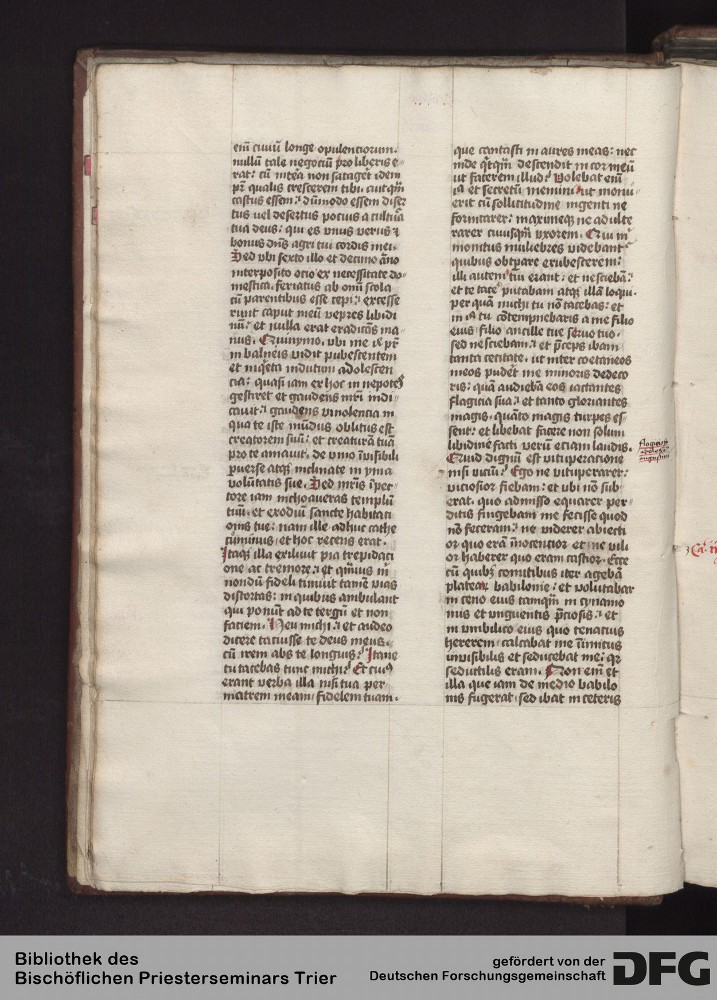 em̄ ciuiū longe opulentiorum.
nullū tale negociū pro liberis e-
rat: cū interea non sataget idem
pr̄ qualis crescerem tibi. aut q̄m
castus essem: dūmodo essem diser
tus uel desertus pocius a cultura
tua deus: qui es vnus verus ⁊
bonus dn̄s agri tui cordis mei.
Sed vbi sexto illo et decimo āno
interposito ocio ex necessitate do-
mestica. feriatus ab om̄i scola
cū parentibus esse cepi: excesse
runt caput meū vepres libidi
nū: et nulla erat eradicās ma-
nus. Quinymo. vbi me ille pr̄
in balneis vidit pubescentem
et inq̇eta indutum adolescen
cia: quasi iam ex hoc in nepotes
gestiret et gaudens mr̄i indi-
cauit: gaudens vinolentia in
qua te iste mūdus oblitus est
creatorem suū: et creaturā tuā
pro te amauit. de vino īuisibili
peruerse atq; inclinate in yma
volūtatis sue. Sed mr̄is ī pec-
tore iam inchoaueras templū
tuū. et exodiū sancte habitaci
onis tue: nam ille adhuc cathe
cuminus. et hoc recens erat.
Itaq; illa exiliuit pia trepidaci
one ac tremore: et q̄muis m̄
nondū fideli timuit tamē vias
distortas: in quibus ambulant
qui ponūt ad te tergū et non
faciem. Heu michi: et audeo
dicere tacuisse te deus meus.
cū irem abs te longius? Itane
tu tacebas tunc michi? Et cui9
erant verba illa nisi tua per
matrem meam. fidelem tuam.
que cantasti in aures meas: nec
inde q̄tq̄m descendit in cor meū
ut facerem illud? Volebat em̄
illa et secretū memini ut monu-
erit cū sollicitudine ingenti ne
fornicarer: maximeq; ne adulte
rarer cuiusq̄m vxorem. Qui m̄
monitus muliebres videbant̄
quibus obtpare erubescerem:
illi autem tui erant: et nesciebā:
et te tacere putabam atq; illā loqui.
per quā michi tu nō tacebas: et
in illa tu cōtempnebaris a me filio
eius. filio ancille tue seruo tuo.
sed nesciebam: et p̄ceps ibam
tanta cecitate. ut inter coetaneos
meos puderet me minoris dedeco
ris: quā audiebā eos iactantes
flagicia sua: et tanto gloriantes
magis. quāto magis turpes es-
sent: et libebat facere non solum
libidine facti verū eciam laudis.
Quid dignū est vituperacione
nisi viciū? Ego ne vituperarer:
viciosior fiebam: et vbi nō sub
erat. quo admisso equarer per-
ditis fingebam me fecisse quod
nō feceram: ne viderer abiecti
or quo erā īnocentior et ne vili
or haberer quo eram castior. Ecce
cū quib; comitibus iter agebā
platear. babilonie: et volutabar
in ceno eius tamq̄m in cynamo
mis et vnguentis p̄ciosis: et
in vmbilico eius quo tenacius
hererem. calcabat me īimicus
inuisibilis et seducebat me: qr
seductilis eram. Non em̄ et
illa que iam de medio babilo
nis fugerat. sed ibat in ceteris
Bibliothek des
Bischöflichen Priesterseminars Trier
gefördert von der
Deutschen Forschungsgemeinschaft
DFG